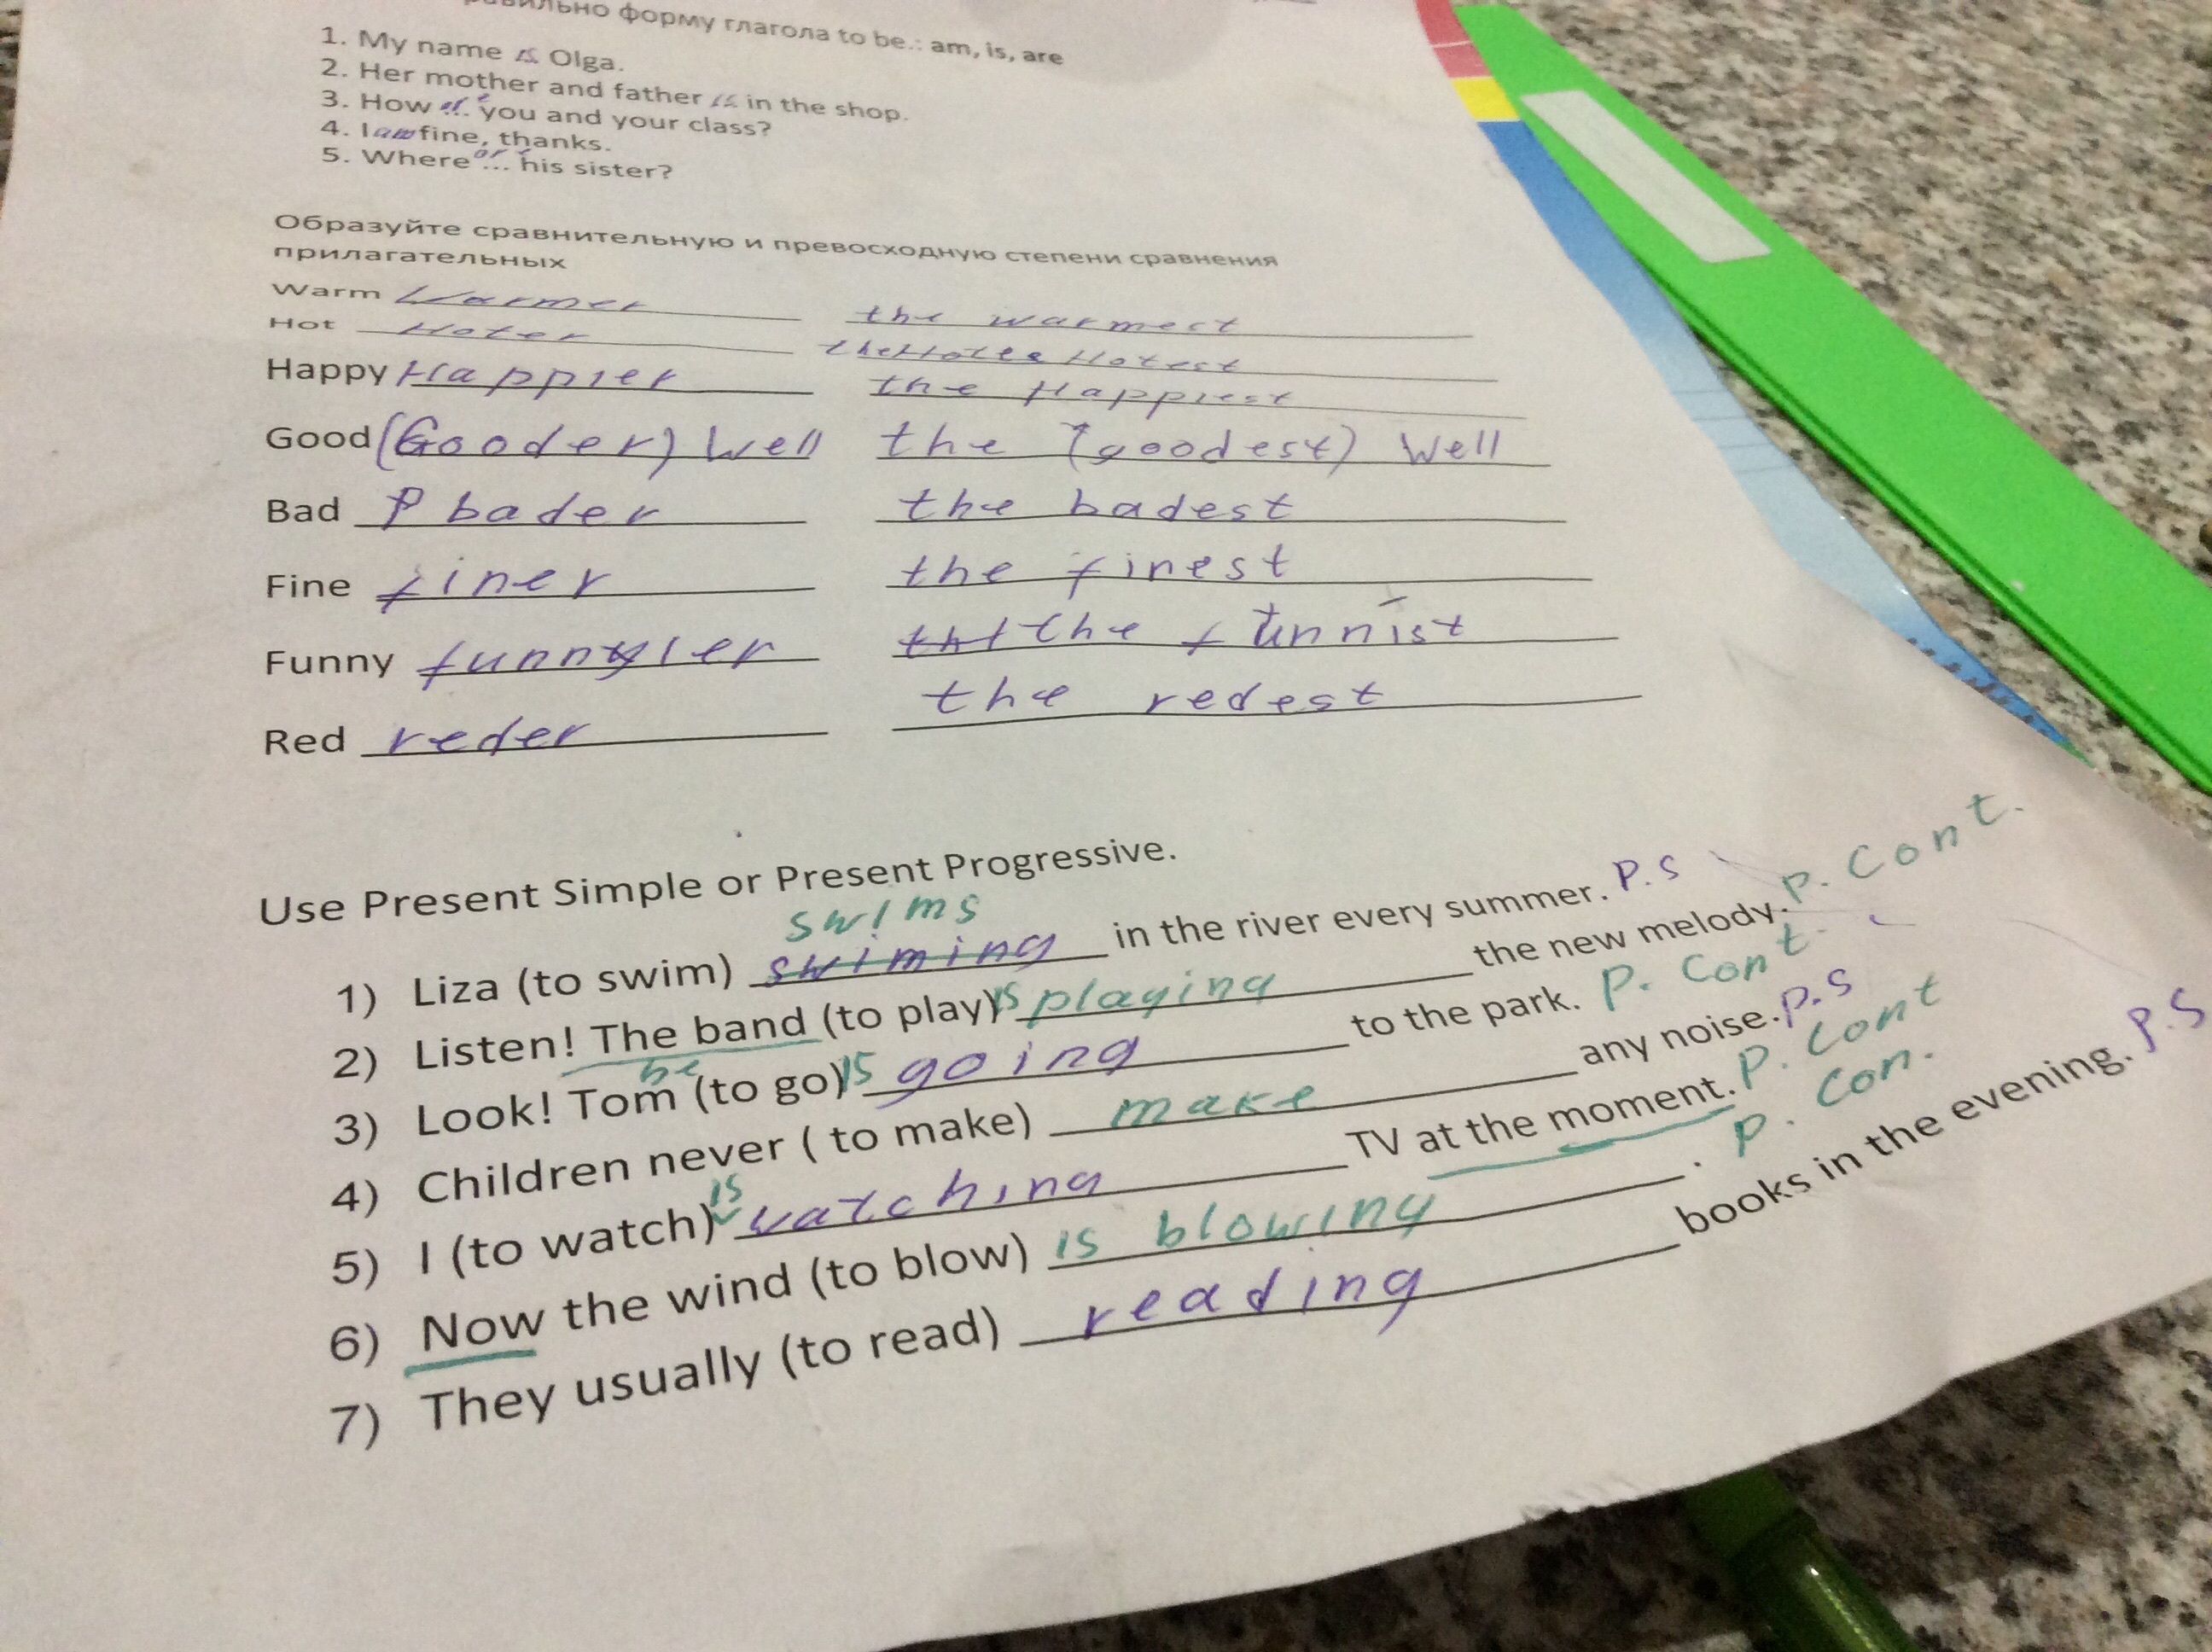 форму глагола to be.: am, is, are
1. My name is Olga.
2. Her mother and father is in the shop.
3. How are you and your class?
4. I am fine, thanks.
5. Where are ... his sister?
Образуйте сравнительную и превосходную степени сравнения
прилагательных
Warm Warmer the warmest
Hot Hoter the Hotest
Happy Happier the Happiest
Good (Gooder) Well the (goodest) Well
Bad bader the badest
Fine finer the finest
Funny funnyier the funnist
Red reder the redest
Use Present Simple or Present Progressive.
swims
1) Liza (to swim) swiming in the river every summer. P.S
2) Listen! The band (to play) is playing the new melody. P. Cont.
be
3) Look! Tom (to go) is going to the park. P. Cont
4) Children never ( to make) make any noise. P.S
5) I (to watch) is watching TV at the moment. P. Cont
6) Now the wind (to blow) is blowing . P. Con.
7) They usually (to read) reading books in the evening. P.S